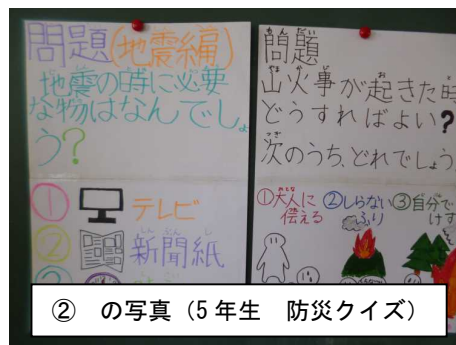 問題(地震編)
地震の時に必要
な物はなんでしょ
う?
① テレビ
② 新聞紙
問題
山火事が起きた時
どうすればよい?
次のうち、どれでしょう
①大人に
伝える
②しらない
ふり
③自分で
けす
② の写真(5年生 防災クイズ)